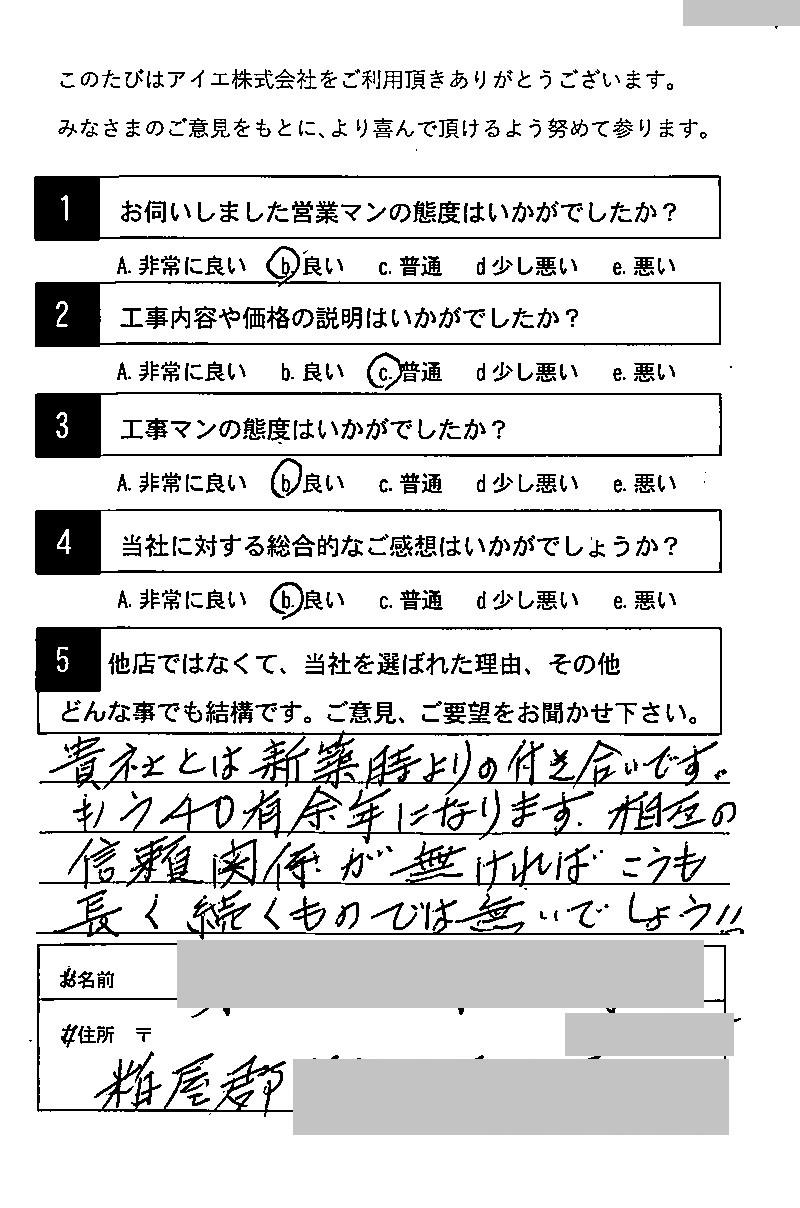 このたびはアイエ株式会社をご利用頂きありがとうございます。
みなさまのご意見をもとに、より喜んで頂けるよう努めて参ります。
1 お伺いしました営業マンの態度はいかがでしたか？
A. 非常に良い b. 良い c. 普通 d 少し悪い e. 悪い
2 工事内容や価格の説明はいかがでしたか？
A. 非常に良い b. 良い c. 普通 d 少し悪い e. 悪い
3 工事マンの態度はいかがでしたか？
A. 非常に良い b. 良い c. 普通 d 少し悪い e. 悪い
4 当社に対する総合的なご感想はいかがでしょうか？
A. 非常に良い b. 良い c. 普通 d 少し悪い e. 悪い
5 他店ではなくて、当社を選ばれた理由、その他
どんな事でも結構です。ご意見、ご要望をお聞かせ下さい。
貴社とは新築時よりの付き合いです。
もう40有余年になります。相互の
信頼関係が無ければこうも
長く続くものでは無いでしょう!!
お名前
ご住所 〒
粕屋郡